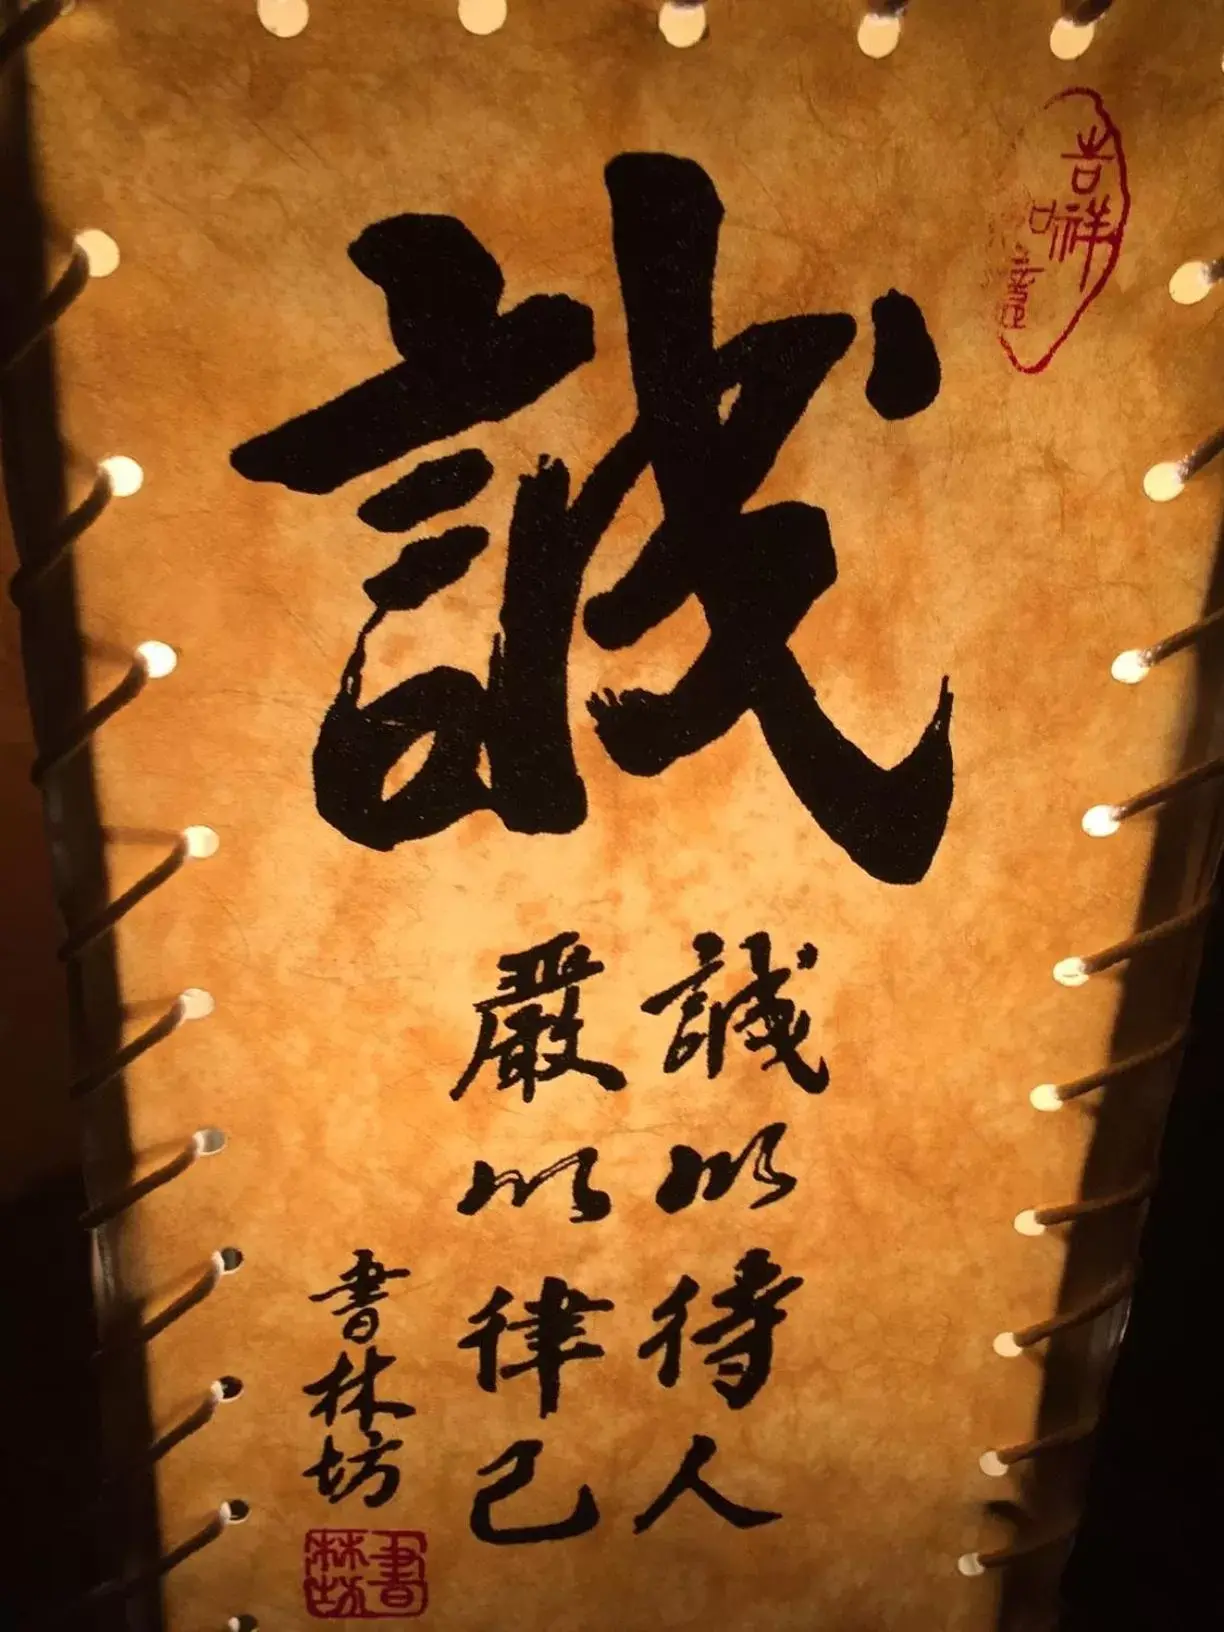 吉祥
誠
誠以待人
嚴以律己
書林坊
書林坊